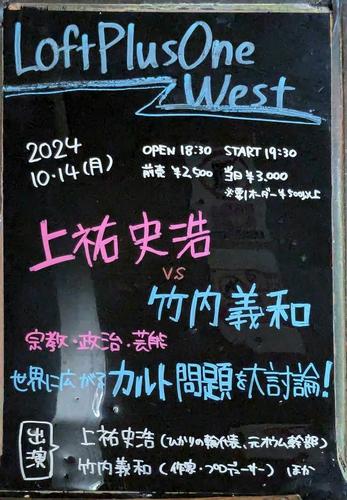 LoftPlusOne
West
2024
10.14(月)
OPEN 18:30 START 19:30
前売 ¥2,500 当日 ¥3,000
※要1オーダー¥500以上
上祐史浩
VS
竹内義和
宗教・政治・芸能
世界に広がるカルト問題を大討論!
出演
上祐史浩(ひかりの輪代表、元オウム幹部)
竹内義和(作家・プロデューサー) ほか